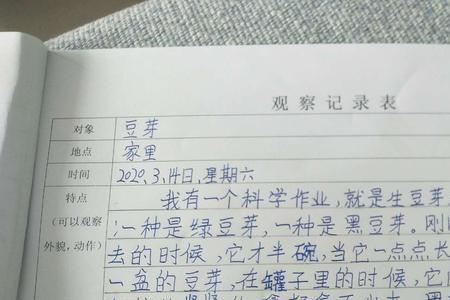 观察记录表
对象 豆芽
地点 家里
时间 2020.3.14日,星期六
特点 我有一个科学作业,就是生豆芽,
(可以观察 一种是绿豆芽,一种是黑豆芽。刚
外貌,动作) 去的时候,它才半碗,当它一点点长
一盆的豆芽,在罐子里的时候,它